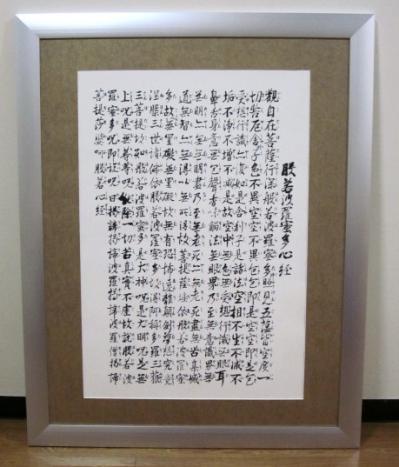 般若波羅蜜多心経
観自在菩薩行深般若波羅蜜多時照見五蘊皆空度一
切苦厄舎利子色不異空空不異色色即是空空即是色
受想行識亦復如是舎利子是諸法空相不生不滅不
垢不浄不増不減是故空中無色無受想行識無眼耳
鼻舌身意無色声香味触法無眼界乃至無意識界
無無明亦無無明尽乃至無老死亦無老死尽無苦集滅
道無智亦無得以無所得故菩提薩埵依般若波羅蜜
多故心無罣礙無罣礙故無有恐怖遠離顛倒夢想究竟
涅槃三世諸仏依般若波羅蜜多故得阿耨多羅三藐
三菩提故知般若波羅蜜多是大神呪是大明呪是無
上呪是無等等呪能除一切苦真実不虚故説般若波
羅蜜多呪即説呪曰羯諦羯諦波羅羯諦波羅僧羯諦
菩提薩婆呵般若心経